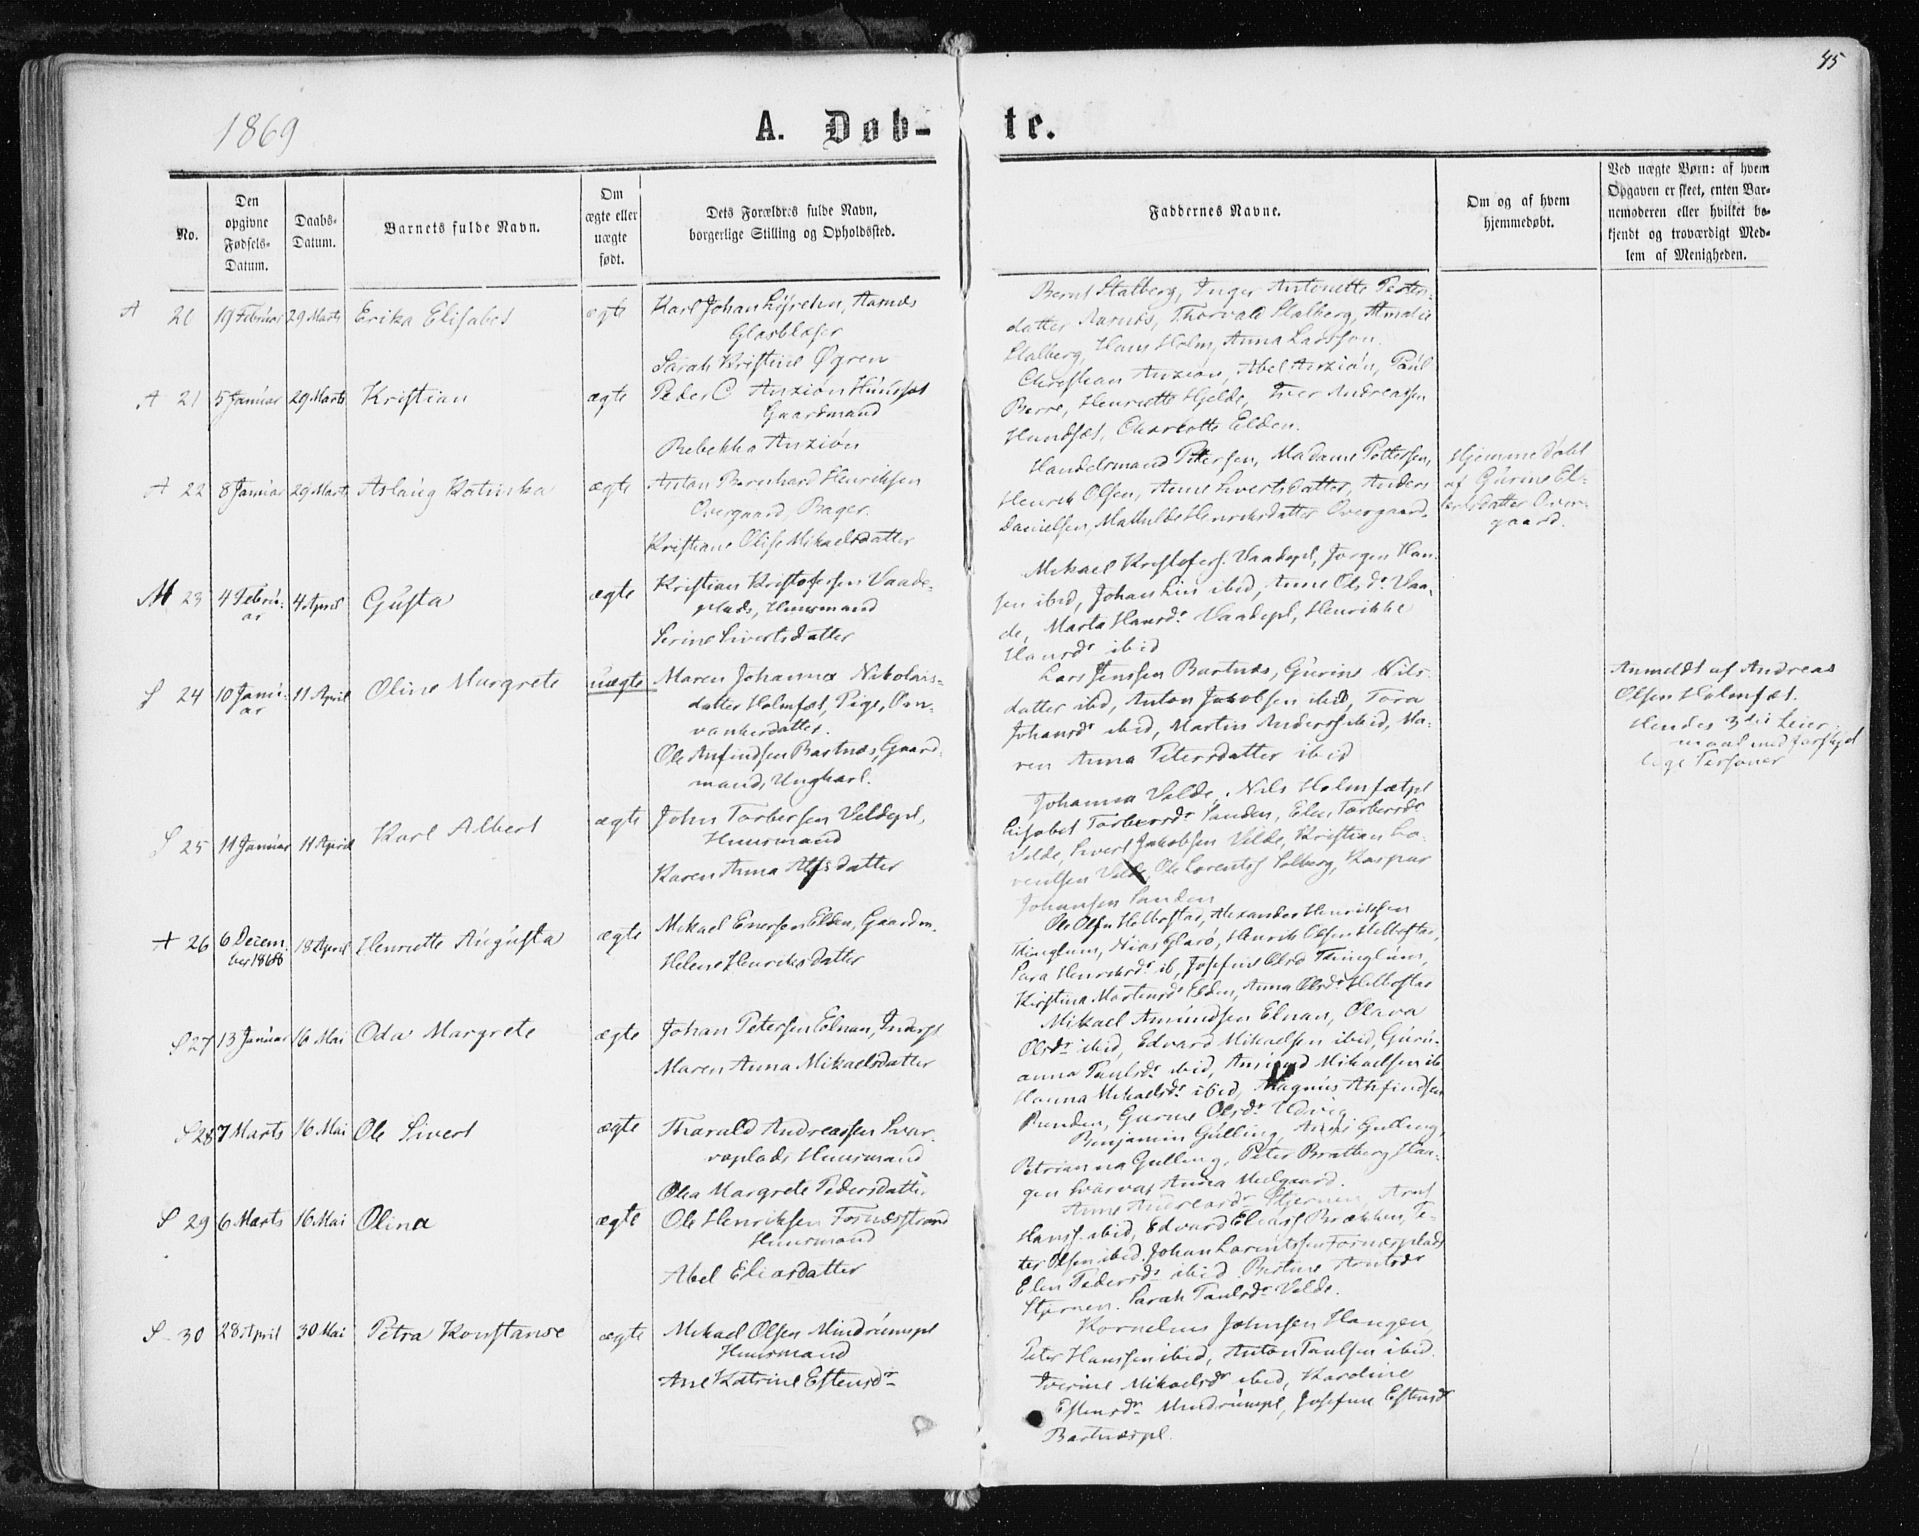 45
1869
A. Døb-te.
No.
Den opgivne Fødsels-Datum.
Daabs-Datum.
Barnets fulde Navn.
Om ægte eller uægte født.
Dets Forældres fulde Navn, borgerlige Stilling og Opholdssted.
Faddernes Navne.
Om og af hvem hjemmedøbt.
Ved uægte Børn: af hvem Opgaven er skeet, enten Barnemoderen eller hvilket bekjendt og troværdigt Medlem af Menigheden.
A 20 19 Februar 29 Marts Erika Elisabet ægte
Karl Johan Aarnæs
Glasblæser
Sarah Kristine Øgren
Bernt Stalberg, Inger Antonette Peders-
datter Aarnæs, Thorvald Stalberg, Amalie
Stalberg, Hans Holm, Anna Larsson.
A 21 5 Januar 29 Marts Kristian ægte
Peder C Anzion Hundsæt
Gaardmand
Rebekka Anzion
Christian Anzion, Abel Anzion, Paul
Barre, Henriette Hjelde, Iver Andreassen
Hundsæt, Charlotte Elden.
A 22 8 Januar 29 Marts Aslaug Katinka ægte
Anton Bernhard Henriksen
Overgaard, Bager.
Kristiane Olise Mikaelsdatter
Handelsmand Petersen, Madame Pettersen,
Henrik Olsen, Anne Sivertsdatter, Anders
Danielsen, Mathilde Henriksdatter Overgaard.
Hjemmedøbt
af Gurine El-
datter Over-
gaard.
M 23 4 Febru-
ar 4 April Gusta ægte
Kristian Kristofersen Vaade-
plads, Huusmand
Serine Sivertsdatter
Mikael Kristofers. Vaadepl, Jørgen Han-
sen ibid, Johan Lin ibid, Anne Ols dr Vaa-
de, Marta Hansdr Vaadepl, Henrikke
Hansdr ibid
S 24 10 Janu-
ar 11 April Oline Margrete uægte
Maren Johanna Nikolais-
datter Holmsæt, Pige,
Ole Anfindsen Bartnæs, Gaard-
mand, Ungkarl.
Lars Jenssen Bartnæs, Gurine Nils-
datter ibid, Anton Jakobsen ibid, Tora
Johansdr ibid, Martin Anderss ibid, Ma-
ren Anna Petersdatter ibid
Anmeldt af Andreas
Olsen Holmsæt.
Hendes 3die Leier-
maal med forskjel-
lige Personer
S 25 11 Januar 11 April Karl Albert ægte
John Torbersen Veldepl,
Huusmand
Karen Anna Alfsdatter
Johanna Velde, Nils Holmsætpl
Lisabet Torbersdr Sanden, Elen Torbersdr
Velde, Sivert Jakobsen Velde, Kristian Lo-
rentsen Velde, Ole Lorentss Solberg, Kaspar
Johansen Sanden
A 26 6 Decem-
ber 1868 18 April Henriette Augusta ægte
Mikael Enersen Elden, Gaardm.
Helene Henriksdatter
Ole Olsen Helbostad, Alexander Henriksen
Tinglum, Henrik Olsen Helbostad,
Sara Henriksdr ib, Josefine Olsd Tinglum,
Kirstina Martensdr Elden, Anna Olsdr Helbostad
S 27 13 Januar 16 Mai Oda Margrete ægte
Johan Petersen Elnan,
Maren Anna Mikaelsdatter
Mikael Amundsen Elnan, Olava
Olsdr ibid, Edvard Mikaelsen ibid, Guru-
anna Paulsdr ibid, Mikaelsen ib
Hanna Mikaelsdr ibid, Magnus Anfindsen
Runden, Gurine Olsdr Utvig
S 28 7 Marts 16 Mai Ole Sivert ægte
Tharald Andreassen Svar-
vaplads Huusmand
Olea Margrete Pedersdatter
Benjamin Gulling, Gulling,
Petrianna Gulling, Peter Bratberg, Haa-
gen Svarvas, Anna Melgaard.
S 29 6 Marts 16 Mai Olina ægte
Ole Henriksen Fornæsstrand
Huusmand
Abel Eliasdatter
Anne Andreasdr Stjernen, Arnt
Hanss. ibid, Edvard Eliass Brækken, Pe-
ter Olsen ibid, Johan Lorentssen Fornæsplads
Elen Pedersdr ibid Arntsdr
Stjernen. Sarah Paulsdr Velde.
S 30 28 April 30 Mai Petra Konstanse ægte
Mikael Olsen Mindrumspl
Huusmand
Ane Katrine Estensdr
Kornelius Johnsen Haugen,
Peter Hanssen ibid, Anton Paulsen ibid.
Iverine Mikaelsdr ibid, Karoline
Estensdr Mindrumspl, Josefine Estensdr
Bartnæspl.